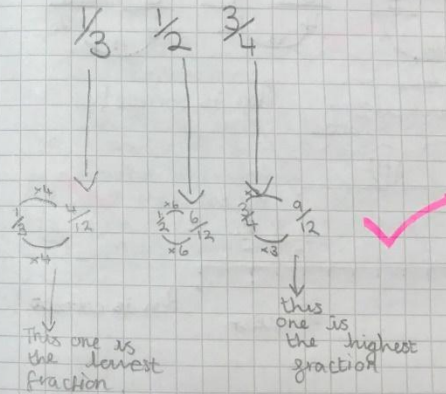 1/3 1/2 3/4
x4 x6 x
1/3 4/12 1/2 6/12 3/4 9/12
x4 x6 x3
This one is
the lowest
fraction
this
one is
the highest
fraction